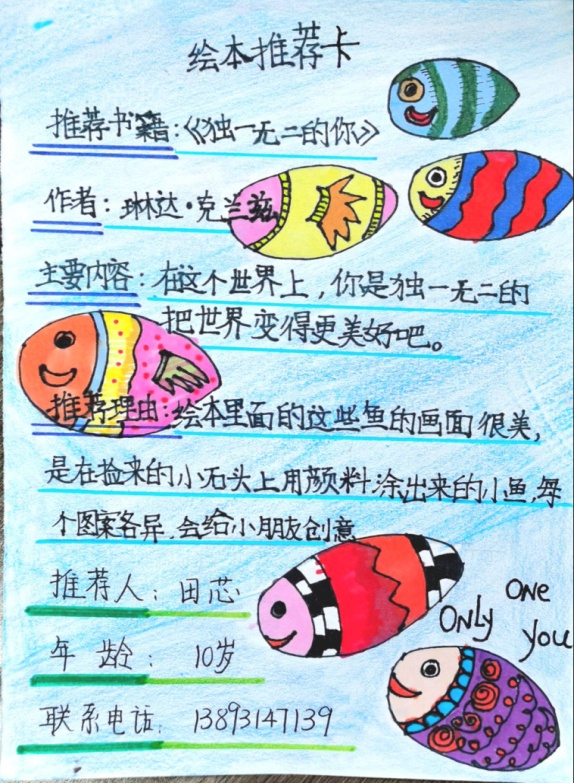 绘本推荐卡
推荐书籍:《独一无二的你》
作者:琳达·克兰兹
主要内容:在这个世界上,你是独一无二的
把世界变得更美好吧。
推荐理由:绘本里面的这些鱼的画面很美,
是在捡来的小石头上用颜料涂出来的小鱼,每
个图案各异.会给小朋友创意
推荐人:田芯
年龄:10岁
联系电话:13893147139
Only One
you